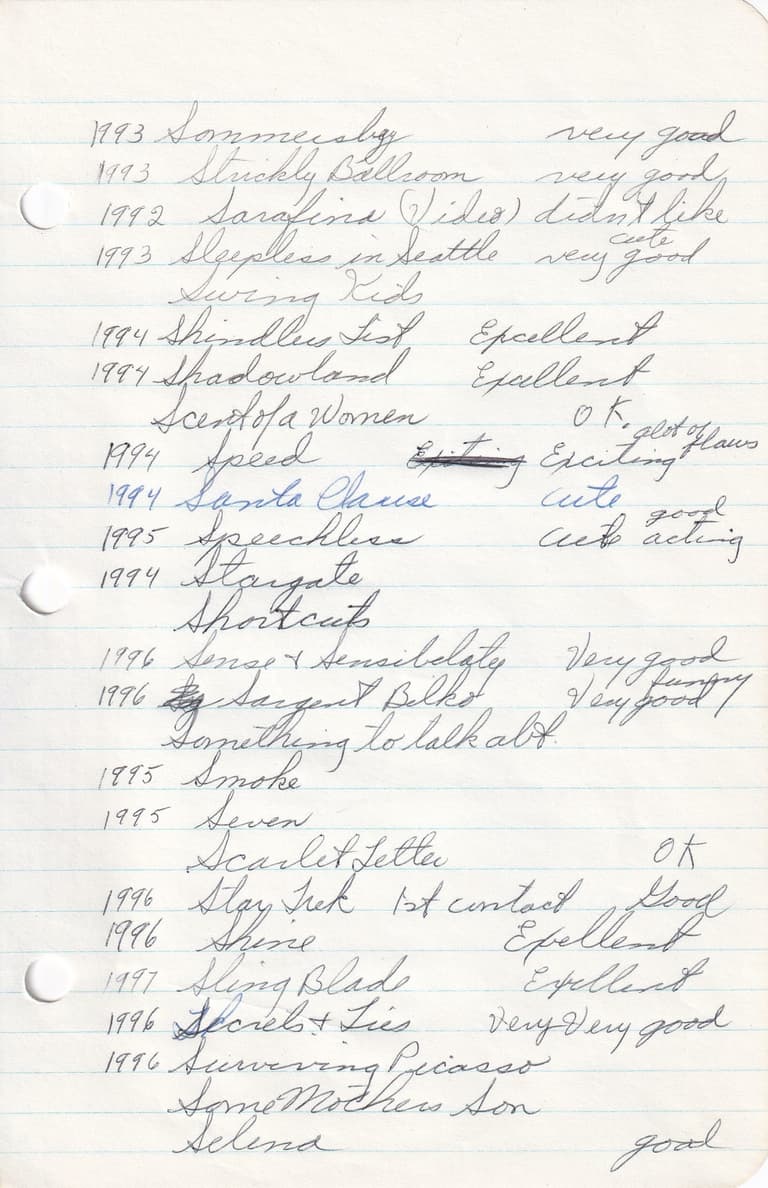 1993 Sommersby very good
1993 Strickly Ballroom very good
1992 Sarafina (Video) didn't like
1993 Sleepless in Seattle very cute good
Swing Kids
1994 Shindlers List Excellent
1994 Shadowland Exellent
Scent of a Women OK
1994 Speed Exciting Exciting alot of flaws
1994 Santa Clause cute
1995 Speechless cute good acting
1994 Stargate
Shortcuts
1996 Sense & Sensibilaty Very good
1996 Sargent Bilko Very good funny
Something to talk abt.
1995 Smoke
1995 Seven
Scarlet Letter OK
1996 Star Trek 1st contact Good
1996 Shine Exellent
1997 Sling Blade Exellent
1996 Secrets & Lies Very Very good
1996 Surviving Picasso
Some Mothers Son
Selena good